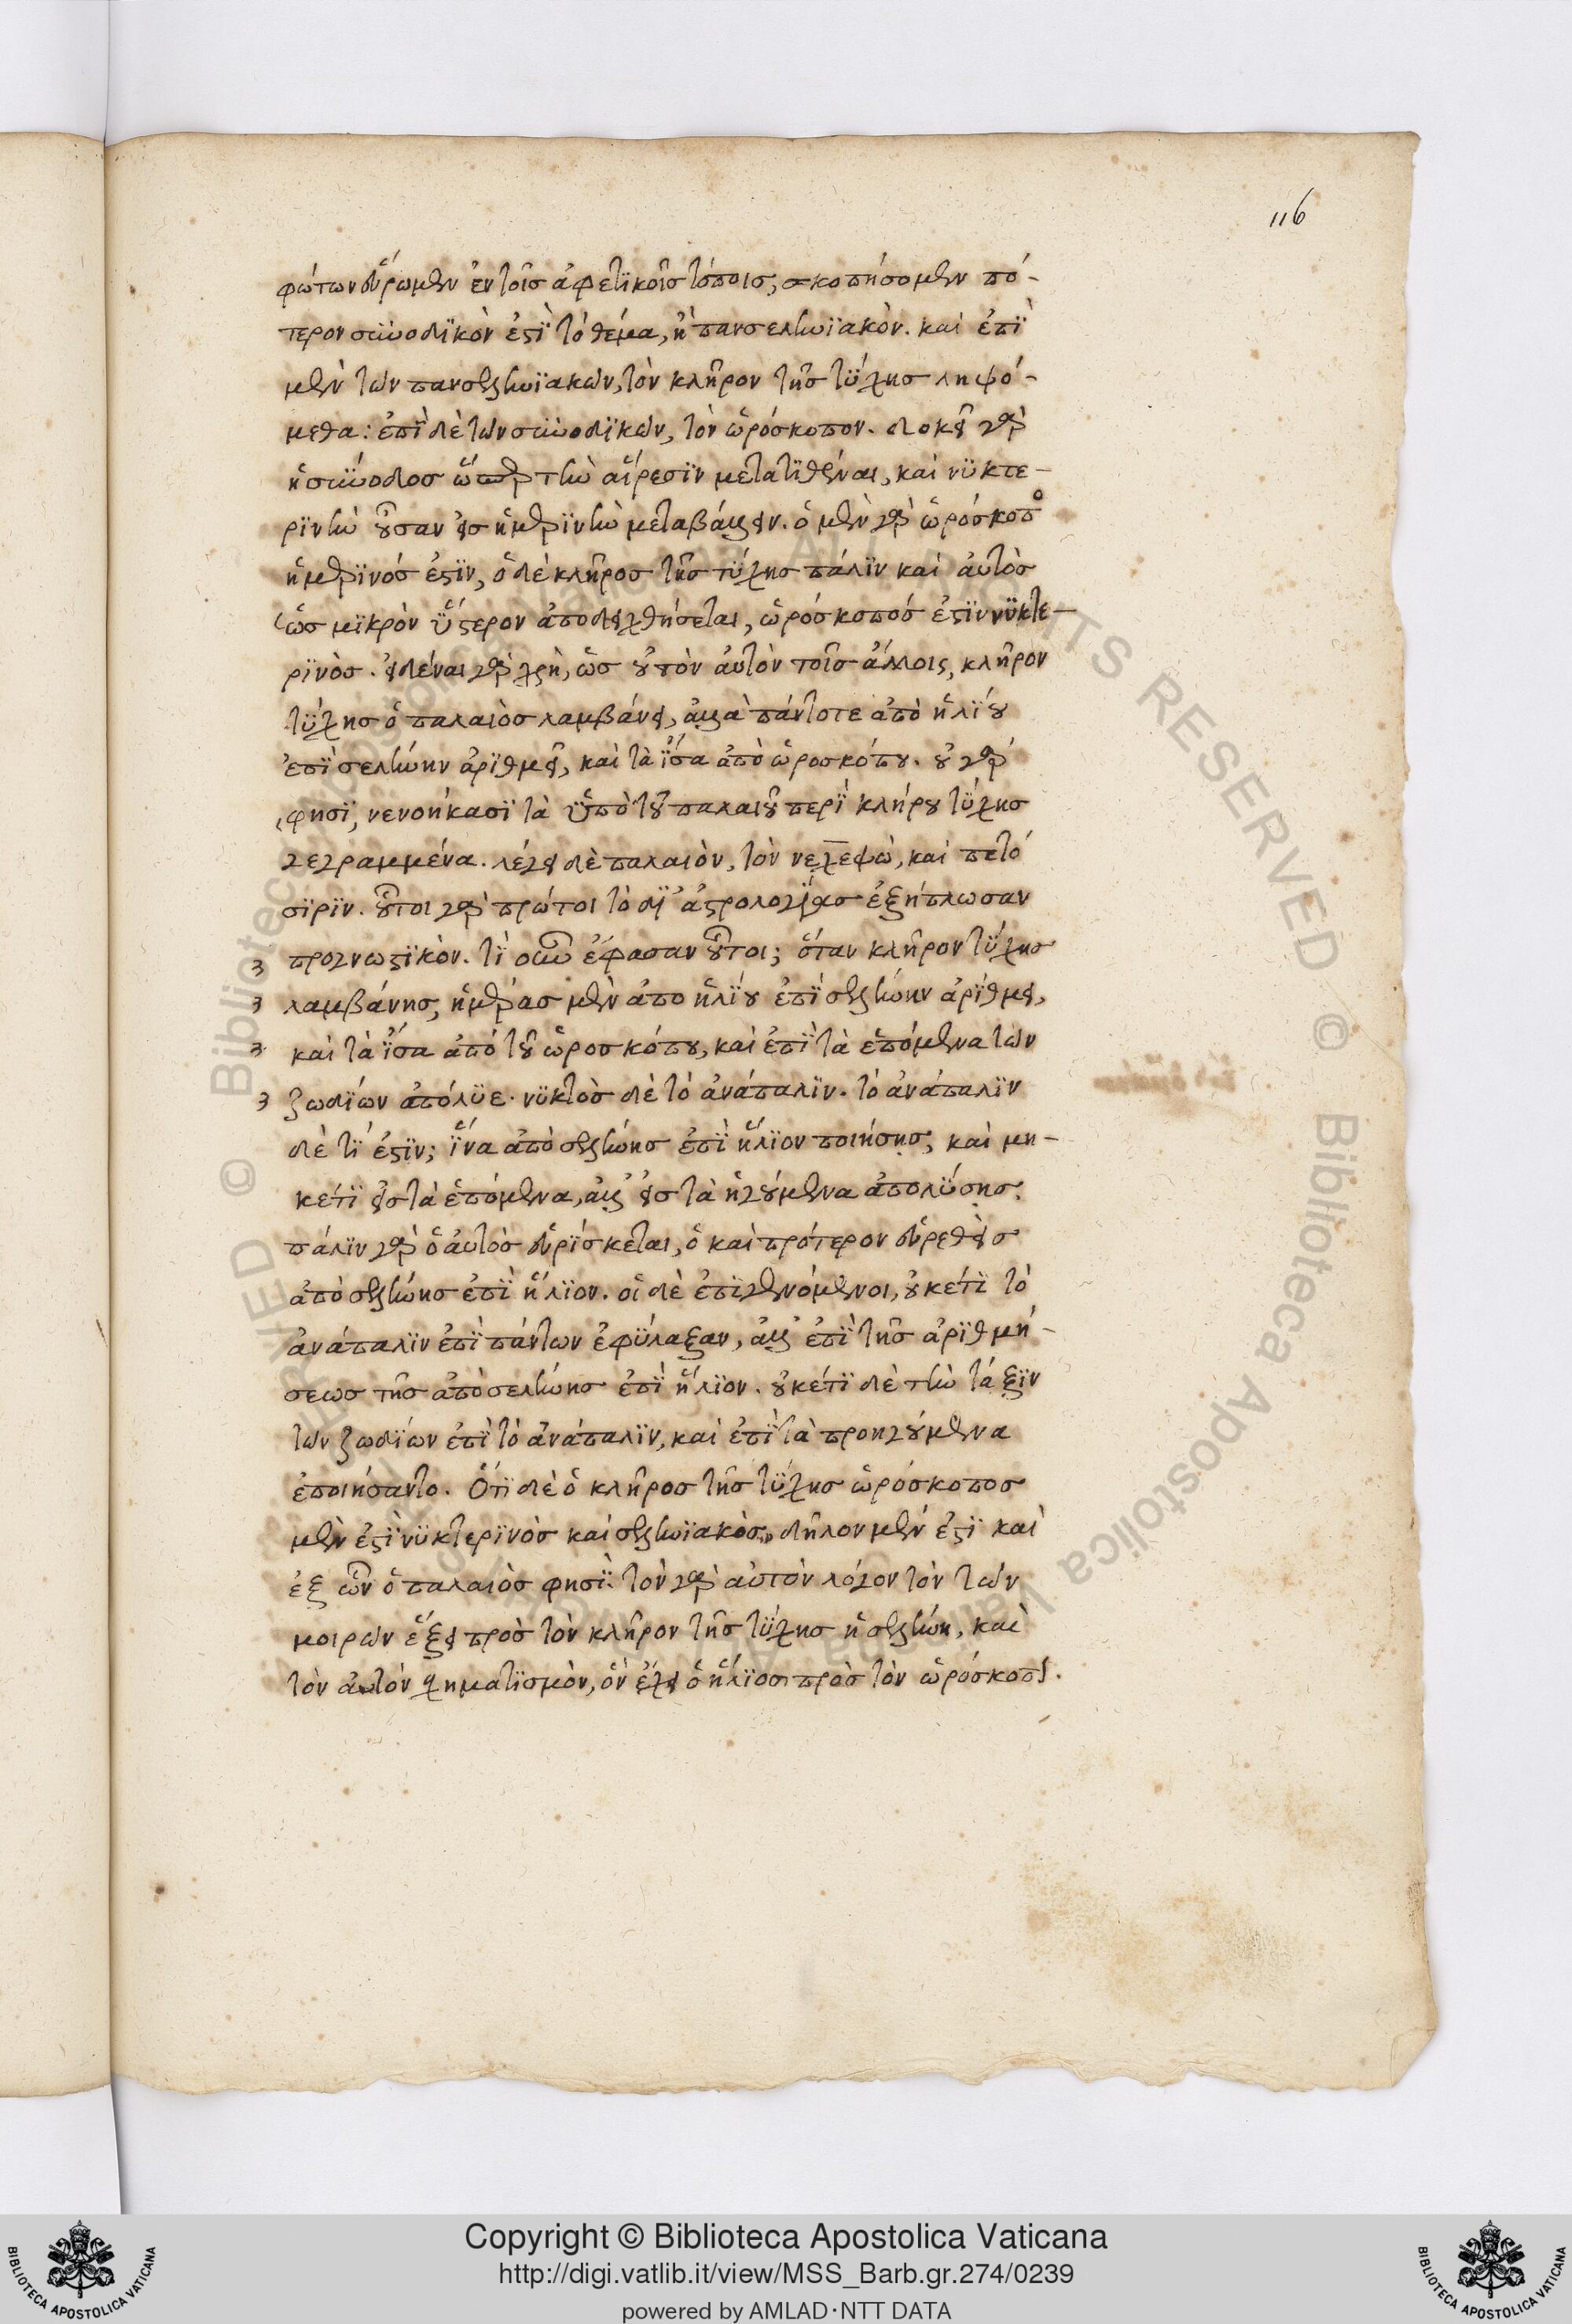 116
φώτων εὕρωμεν ἐν τοῖς ἀφετικοῖς τόποις, σκοπήσομεν πό-
τερον συνοδικὸν ἐστὶ τὸ θέμα, ἢ πανσεληνιακὸν. καὶ ἐπὶ
μὲν τῶν πανσεληνιακῶν, τὸν κλῆρον τῆς τύχης ληψό-
μεθα: ἐπὶ δὲ τῶν συνοδικῶν, τὸν ὡρόσκοπον. δοκεῖ γὰρ
ἡ σύνοδος ὥσπερ τὴν αἵρεσιν μετατιθέναι, καὶ νυκτε-
ρινὴν οὖσαν εἰς ἡμερινὴν μεταβάλλειν. ὁ μὲν γὰρ ὡρόσκοπο
ἡμερινός ἐστιν, ὁ δὲ κλῆρος τῆς τύχης πάλιν καὶ αὐτὸς
ὡς μικρὸν ὕστερον ἀποδειχθήσεται, ὡρόσκοπός ἐστιν νυκτε-
ρινὸς. εἰδέναι γὰρ χρὴ, ὡς οὐ τὸν αὐτὸν τοῖς ἄλλοις, κλῆρον
τύχης ὁ παλαιὸς λαμβάνει, ἀλλὰ πάντοτε ἀπὸ ἡλίου
ἐπὶ σελήνην ἀριθμεῖ, καὶ τὰ ἴσα ἀπὸ ὡροσκόπου. οὐ γάρ
φησὶ, νενοήκασι τὰ ὑπὸ τοῦ παλαιοῦ περὶ κλήρου τύχης
γεγραμμένα. λέγει δὲ παλαιὸν, τὸν νεχεψὼ, καὶ πετό
σιριν. οὗτοι γὰρ πρῶτοι τὸ δι' ἀστρολογίας ἐξήπλωσαν
προγνωστικὸν. τί οὖν ἔφασαν οὗτοι; ὅταν κλῆρον τύχης
λαμβάνης, ἡμέρας μὲν ἀπο ἡλίου ἐπὶ σελήνην ἀρίθμει,
καὶ τὰ ἴσα ἀπό τοῦ ὡροσκόπου, καὶ ἐπὶ τὰ ἑπόμενα τῶν
ζωδίων ἀπόλυε. νυκτὸς δὲ τὸ ἀνάπαλιν. τὸ ἀνάπαλιν
δὲ τί ἐστιν; ἵνα ἀπὸ σελήνης ἐπὶ ἥλιον ποιήσης, καὶ μη-
κέτι εἰς τὰ ἑπόμενα, ἀλλ' εἰς τὰ ἡγούμενα ἀπολύσης.
πάλιν γὰρ ὁ αὐτὸς εὑρίσκεται, ὁ καὶ πρότερον εὑρεθεὶς
ἀπὸ σελήνης ἐπὶ ἥλιον. οἱ δὲ ἐπιγενόμενοι, οὐκέτι τὸ
ἀνάπαλιν ἐπὶ πάντων ἐφύλαξαν, ἀλλ' ἐπὶ τῆς ἀριθμή-
σεως τῆς ἀπὸ σελήνης ἐπὶ ἥλιον. οὐκέτι δὲ τὴν τάξιν
τῶν ζωδίων ἐπὶ τὸ ἀνάπαλιν, καὶ ἐπὶ τὰ προηγούμενα
ἐποιήσαντο. Ὅτι δὲ ὁ κλῆρος τῆς τύχης ὡρόσκοπος
μὲν ἐστὶ νυκτερινὸς καὶ σεληνιακὸς, δῆλον μὲν ἐστὶ καὶ
ἐξ ὧν ὁ παλαιὸς φησὶ. τὸν γὰρ αὐτὸν λόγον τὸν τῶν
μοιρῶν ἕξει πρὸς τὸν κλῆρον τῆς τύχης ἡ σελήνη, καὶ
τὸν αὐτὸν σχηματισμὸν, ὃν ἔχει ὁ ἥλιος πρὸς τὸν ὡρόσκοπον.
Copyright © Biblioteca Apostolica Vaticana
http://digi.vatlib.it/view/MSS_Barb.gr.274/0239
powered by AMLAD·NTT DATA
BIBLIOTECA APOSTOLICA VATICANA
BIBLIOTECA APOSTOLICA VATICANA